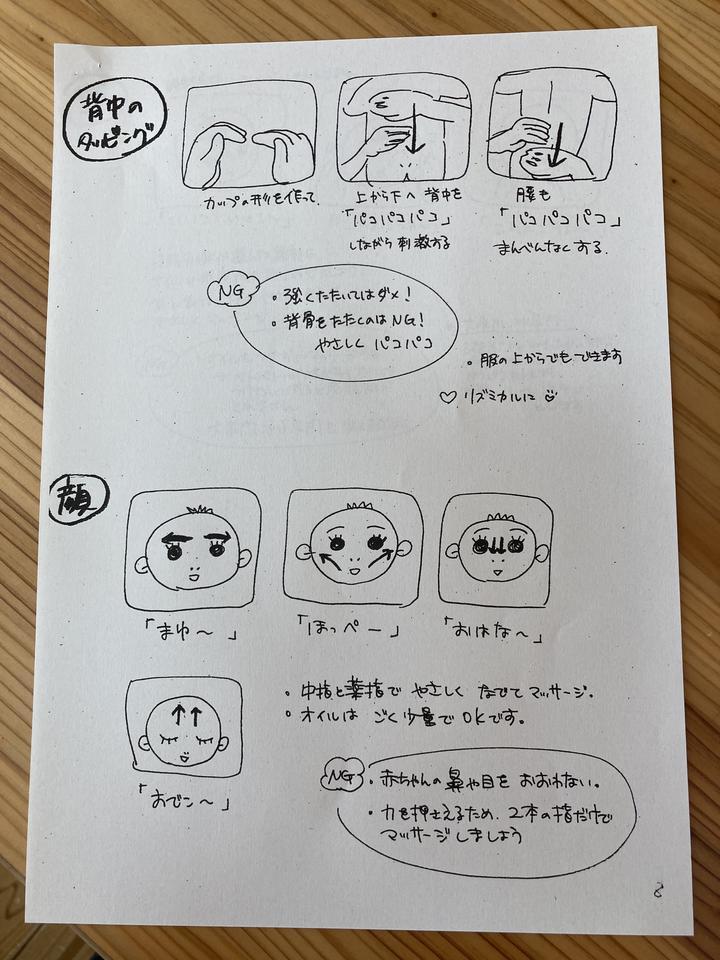 背中の
タッピング
カップの形を作って
上から下へ 背中を
「パコパコパコ」
しながら刺激する
腰も
「パコパコパコ」
まんべんなくする.
NG
・強くたたいてはダメ!
・背骨をたたくのはNG!
やさしく パコパコ
・服の上からでもできます
♡ リズミカルに
顔
「まゆ〜 」
「ほっぺー 」
「おはな〜」
「おでこ〜」
・中指と薬指で やさしく なでて マッサージ.
・オイルは ごく少量で OKです。
NG
・赤ちゃんの 鼻や目を おおわない。
・力を押さえるため. 2本の指だけで
マッサージしましょう
8